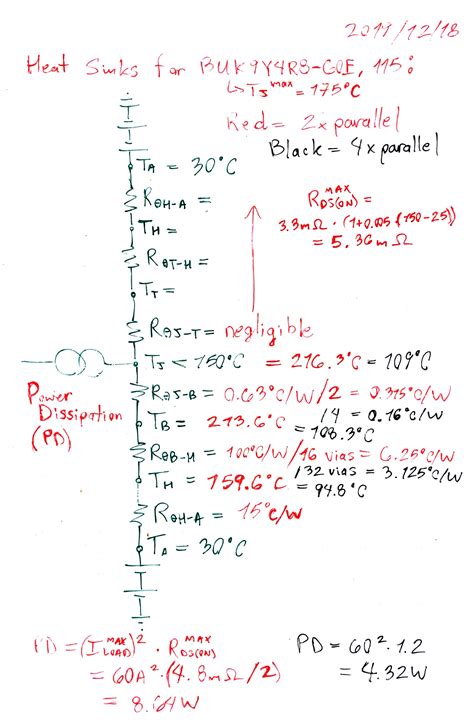 2019/12/18
Heat Sinks for BUK9Y4R8-60E, 115:
↳TJ^max = 175°C
Red = 2x parallel
Black = 4x parallel
TA = 30°C
RθH-A =
R_DS(ON)^MAX =
3.3mΩ · (1+0.005 (150-25))
= 5.36mΩ
TH =
RθT-H =
TT =
RθJ-T = negligible
TJ < 150°C = 216.3°C = 109°C
Power Dissipation (PD)
RθJ-B = 0.63°C/W/2 = 0.315°C/W
/4 = 0.16°C/W
TB = 213.6°C = 108.3°C
RθB-H = 100°C/W/16 vias = 6.25°C/W
/32 vias = 3.125°C/W
TH = 159.6°C = 94.8°C
RθH-A = 15°C/W
TA = 30°C
PD = (I_LOAD^MAX)² · R_DS(ON)^MAX
= 60A² · (4.8mΩ/2)
= 8.64W
PD = 60² · 1.2
= 4.32W